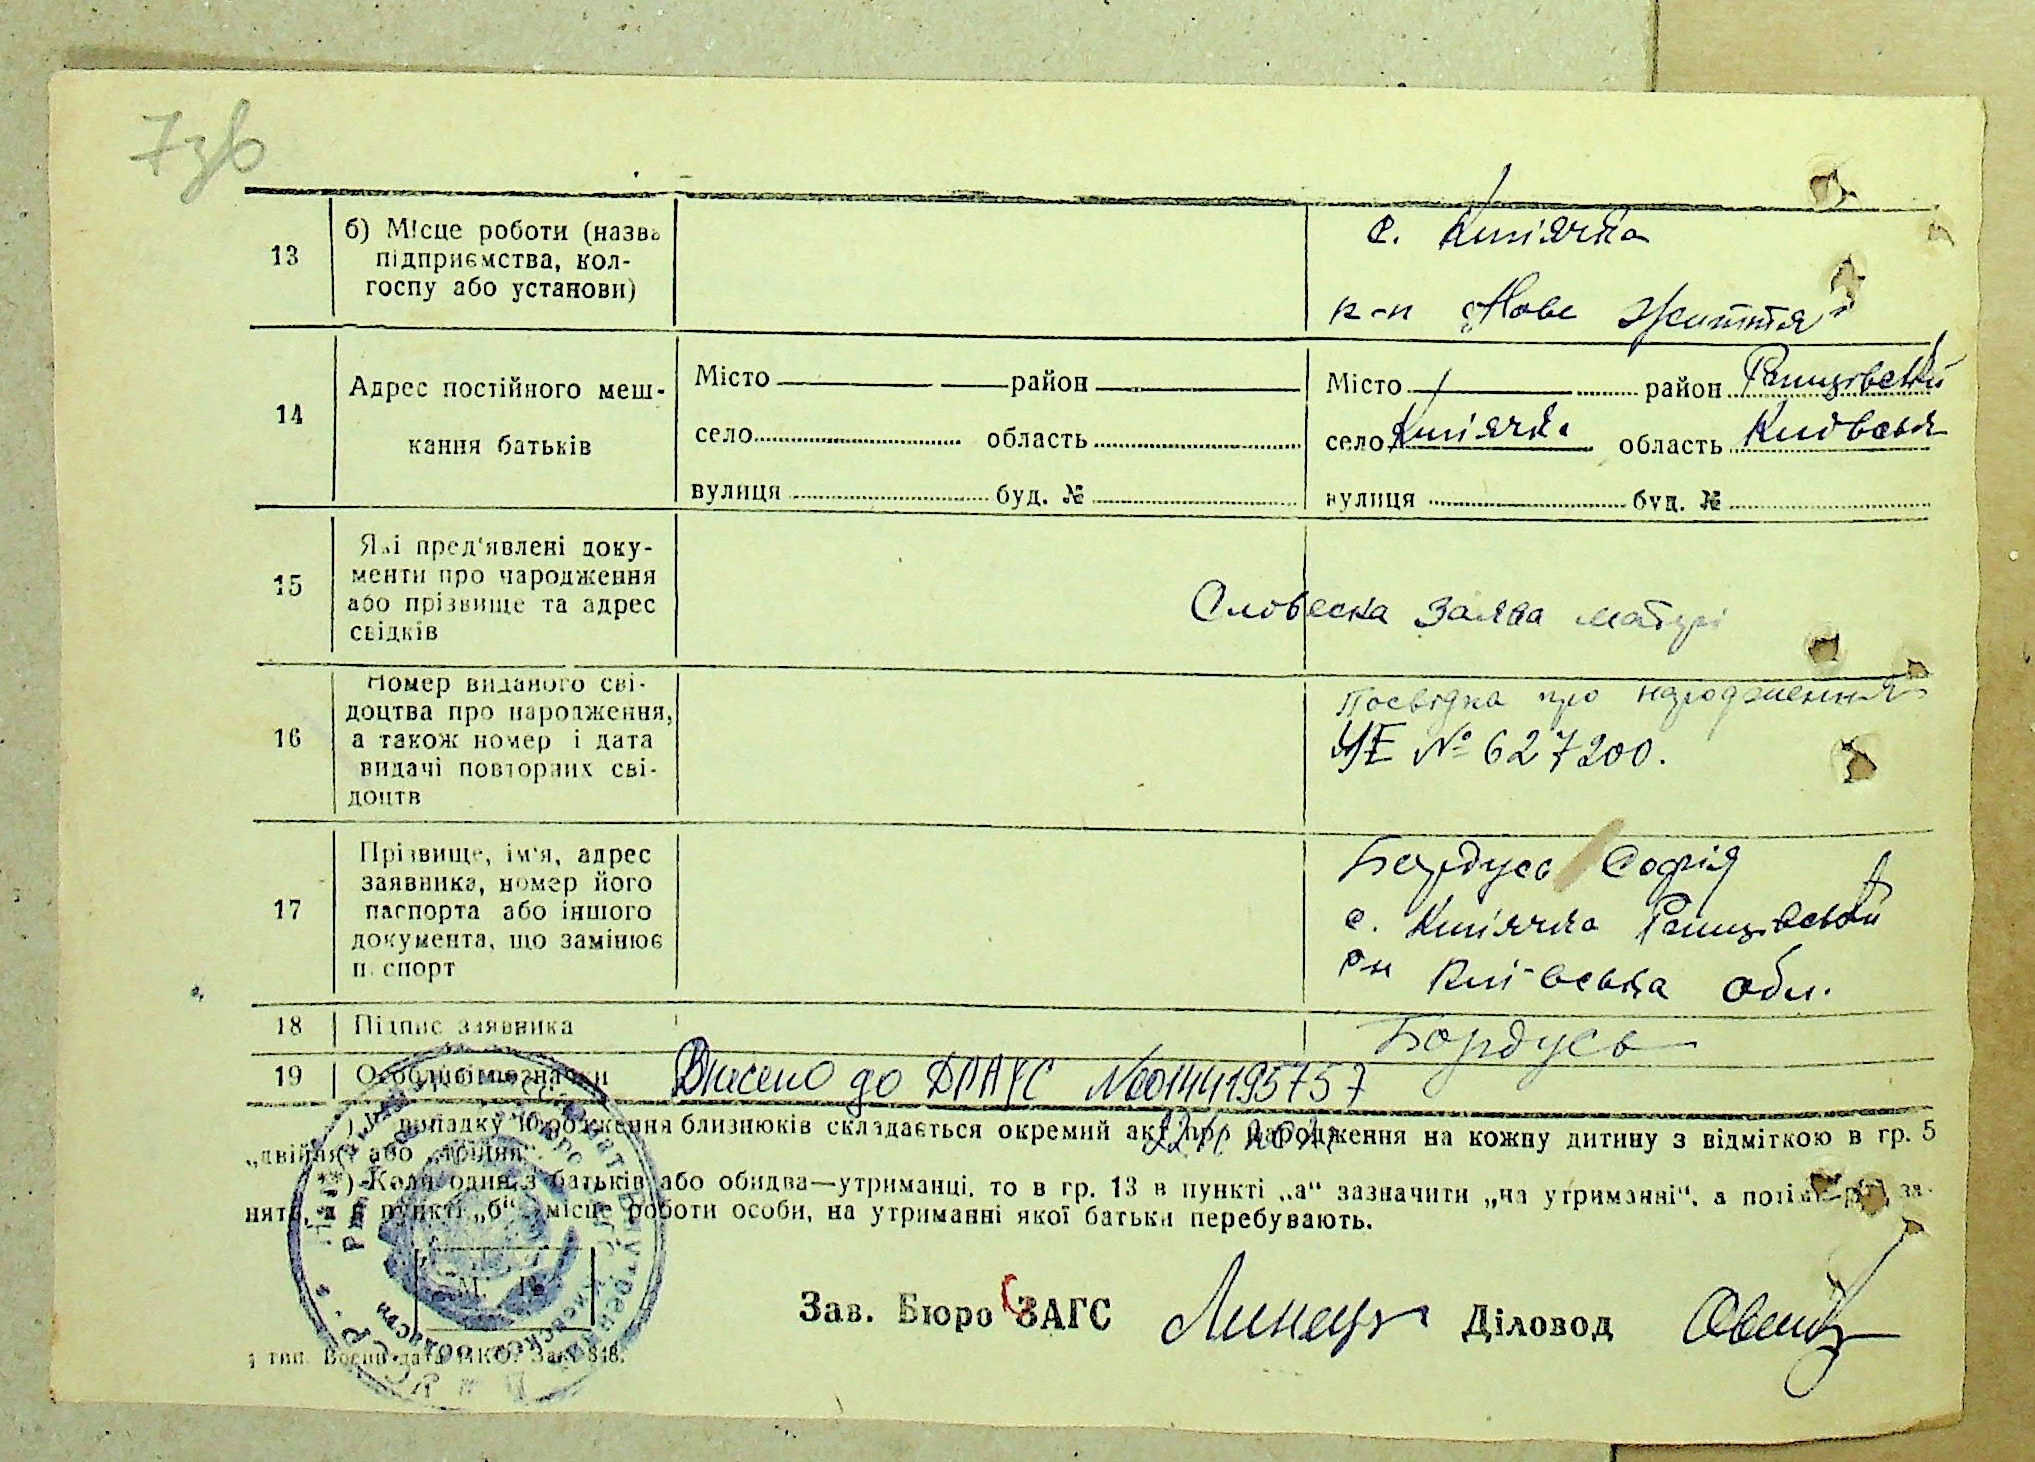 7зв
13
б) Місце роботи (назва
підприємства, кол-
госпу або установи)
с. Кип'ячка
к-п „Нове Життя"
14
Адрес постійного меш-
кання батьків
Місто район
село область
вулиця буд. №
Місто район Ржищівський
село Кип'ячка область Київська
вулиця буд. №
15
Які пред'явлені доку-
менти про народження
або прізвище та адрес
свідків
Словесна заява матері
16
Номер виданого сві-
доцтва про народження,
а також номер і дата
видачі повторних сві-
доцтв
Посвідка про народження
УЕ № 627200.
17
Прізвище, ім'я, адрес
заявника, номер його
паспорта або іншого
документа, що замінює
п.спорт
Бордусь Софія
с. Кип'ячка Ржищівський
р-н Київська обл.
18
Підпис заявника
Бордусь
19
Особливі означки
Внесено до ДРАЦС №00144195757
) У випадку народження близнюків складається окремий акт про народження на кожну дитину з відміткою в гр. 5
„двійня" або „трійня".
**) Коли один з батьків або обидва—утриманці, то в гр. 13 в пункті „а" зазначити „на утриманні", а потім рід за-
нять, а в пункті „б" місце роботи особи, на утриманні якої батьки перебувають.
М. П.
Зав. Бюро ЗАГС
Діловод